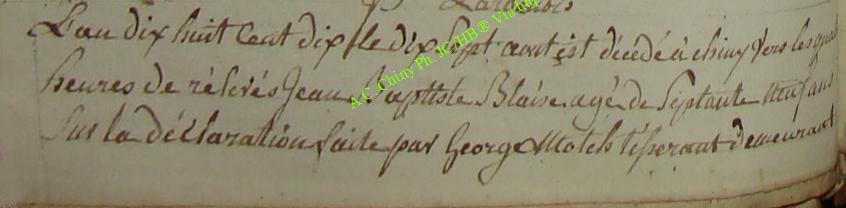 L'an dix huit Cent dix le dix Sept aout est décédé a chiny vers les quatre
heures de relevés Jean Baptiste Blaise agé de Septante neuf ans
Sur la déclaration faite par George tisserant demeurant
A.C. Chiny Ph. JC/HB ®